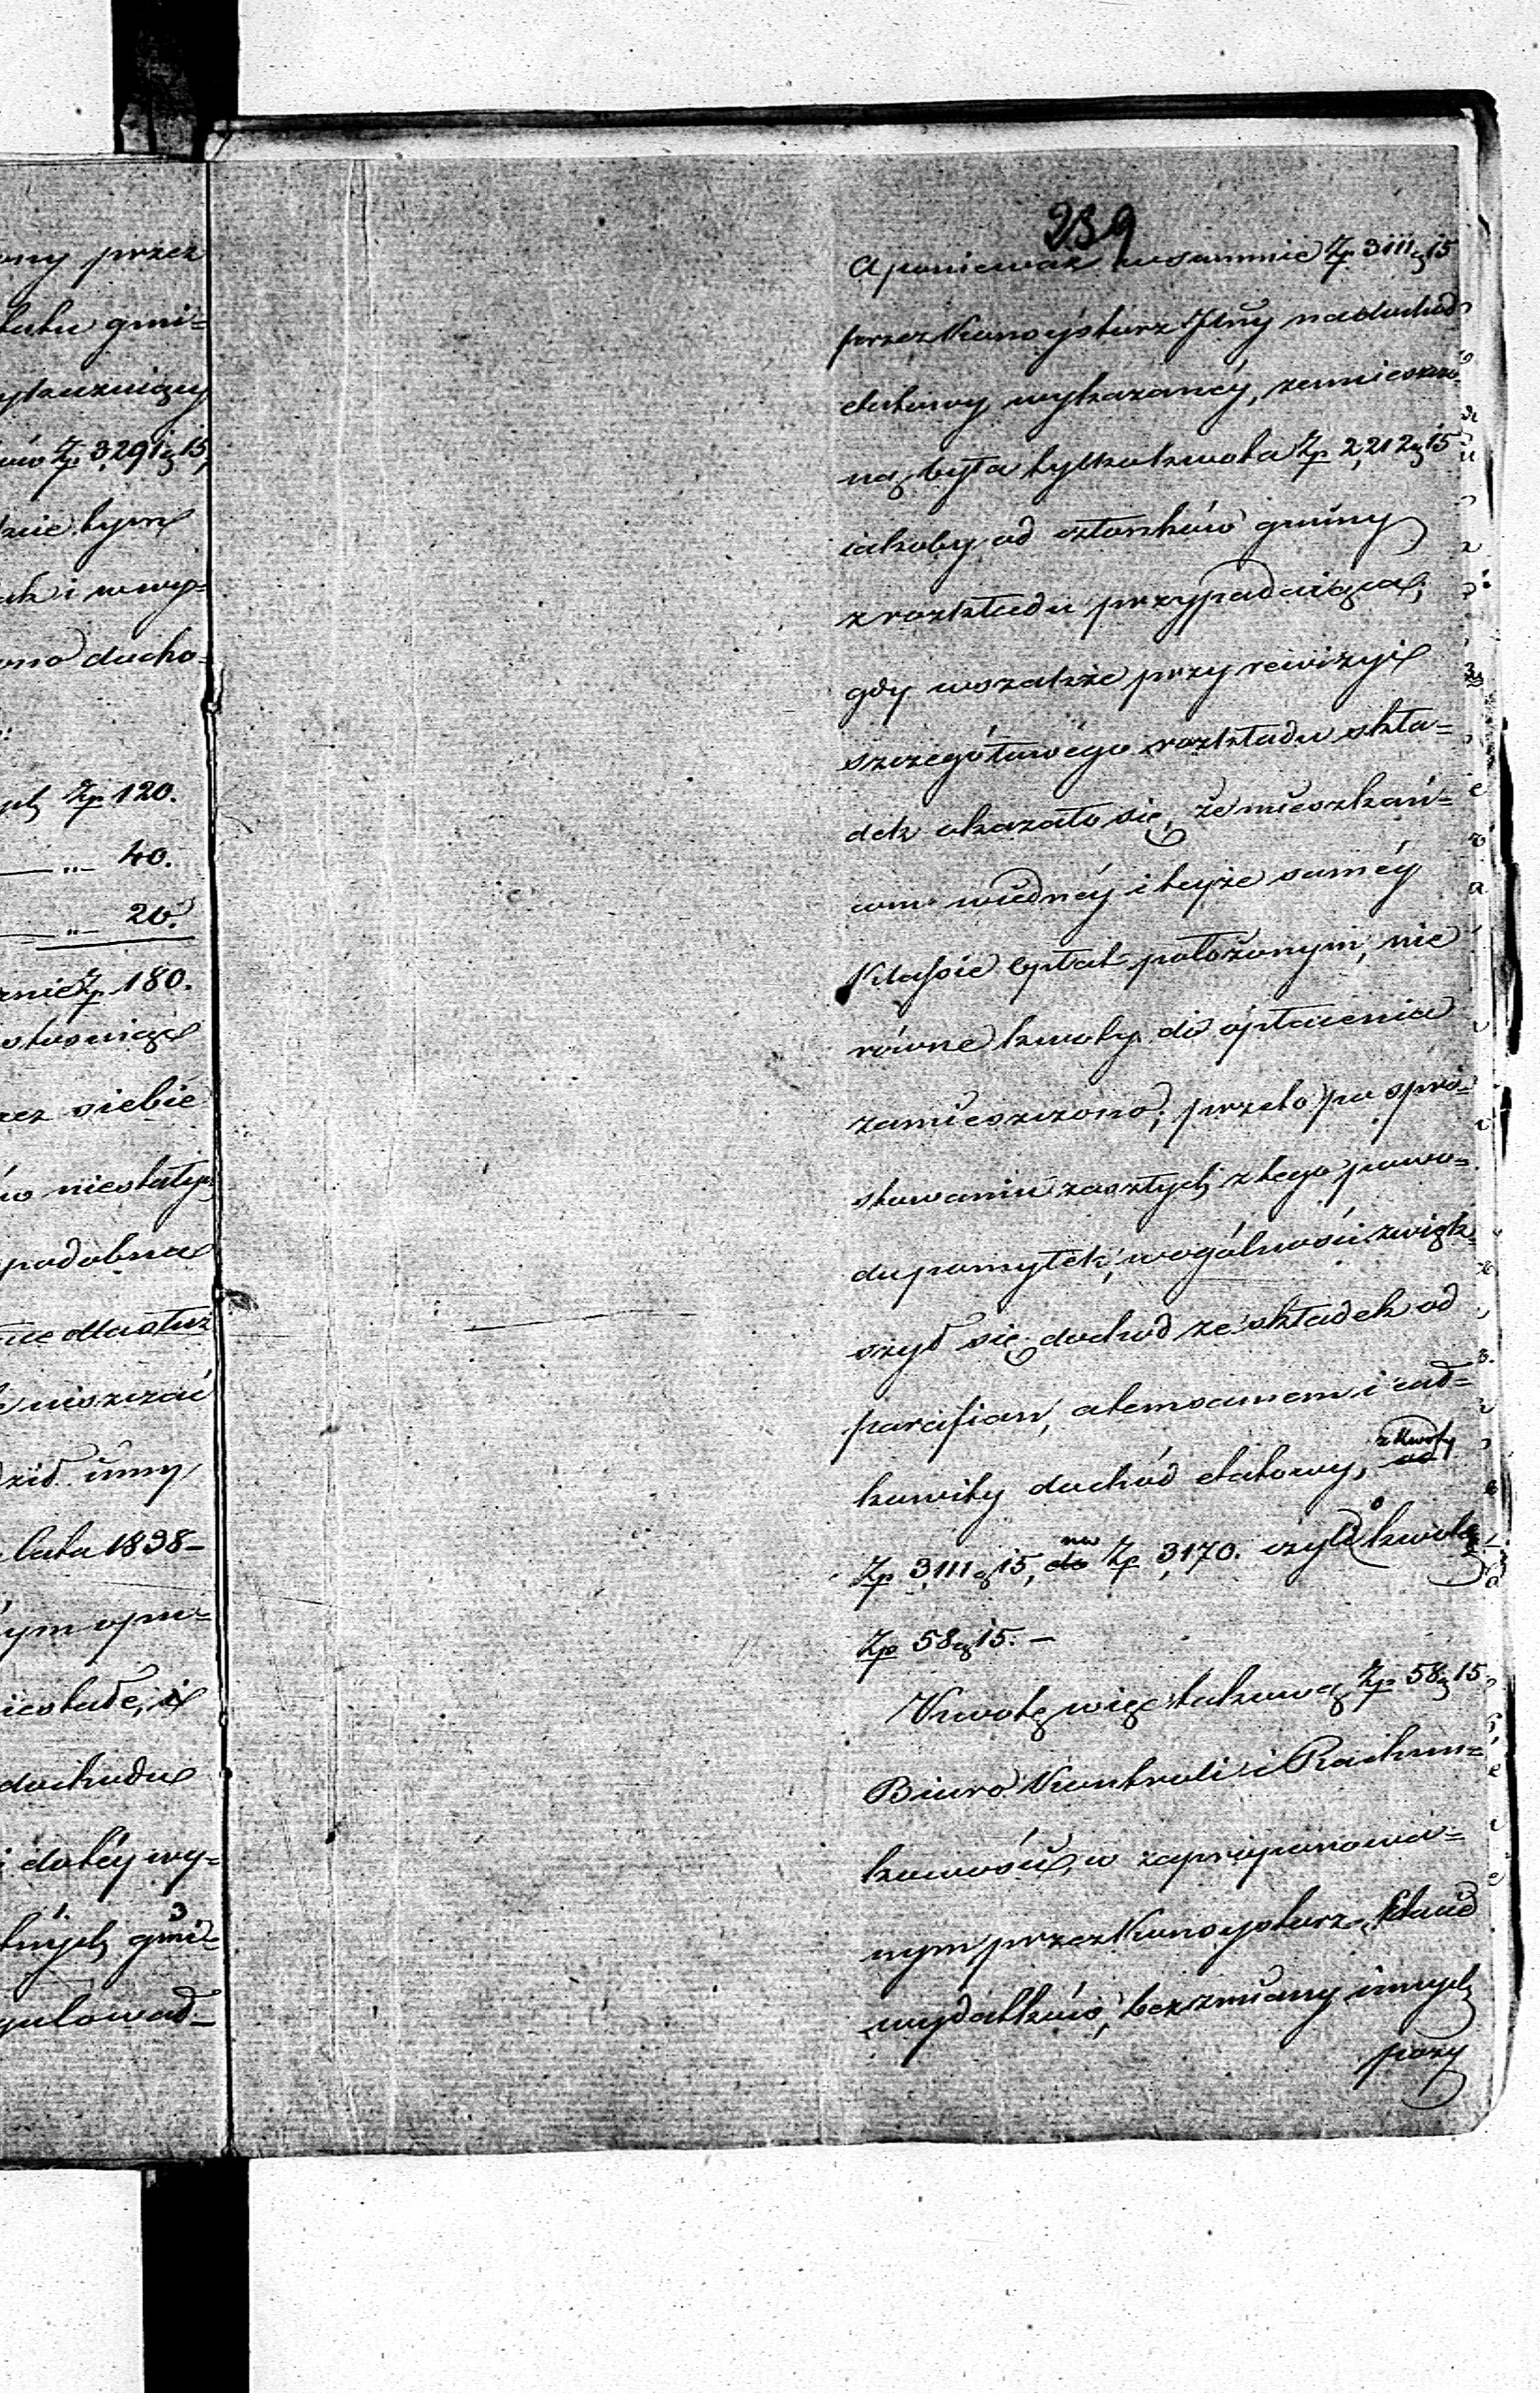 ony przez
tatu gmi=
ykazuiący
ów Zp 3,291 g 15,
zie tym
ak i wwy=
ono docho=
ych Zp 120.
— „ — 40.
— „ — 20.
znie Zp 180.
stosuiąc
zez siebie
ów niestałych
podobna
uiszczać
dził inny
lata 1838 —
ym opu=
iestałe, i
dochodu
i dotéy wy=
tnych gmi=
gulował —
239
A ponieważ wsummie Zp 3111 g 15
przez Konsystorz Jlny nadochód
etatowy wykazanéy, zamieszczo=
ną była tylko kwota Zp 2,212 g 15
iakoby od członków gminy
z rozkładu przypadaiąca,
gdy wszakże przy rewizyi
szczegółowego rozkładu skła=
dek okazało się, że mieszkań=
com wiednéy i teyże saméy
Klassie opłat położonym, nie
równe kwoty do opłacenia
zamieszczono; przeto po spro=
stowaniu zaszłych z tego powo=
du pomyłek, wogólności zwięk=
szył się dochod ze składek od
parafian, a temsamem i cał=
kowity dochód etatowy, z kwoty
Zp 3,111 g 15, do na Zp 3,170. czyli o kwotę
Zp 58 g 15. —
Kwotę więc takową Zp 58 g 15.
Biuro Kontroli i Rachun=
kowości, w zaproponowa=
nym przez Konsystorz Etacie
wydatków, bez zmiany innych
pozy